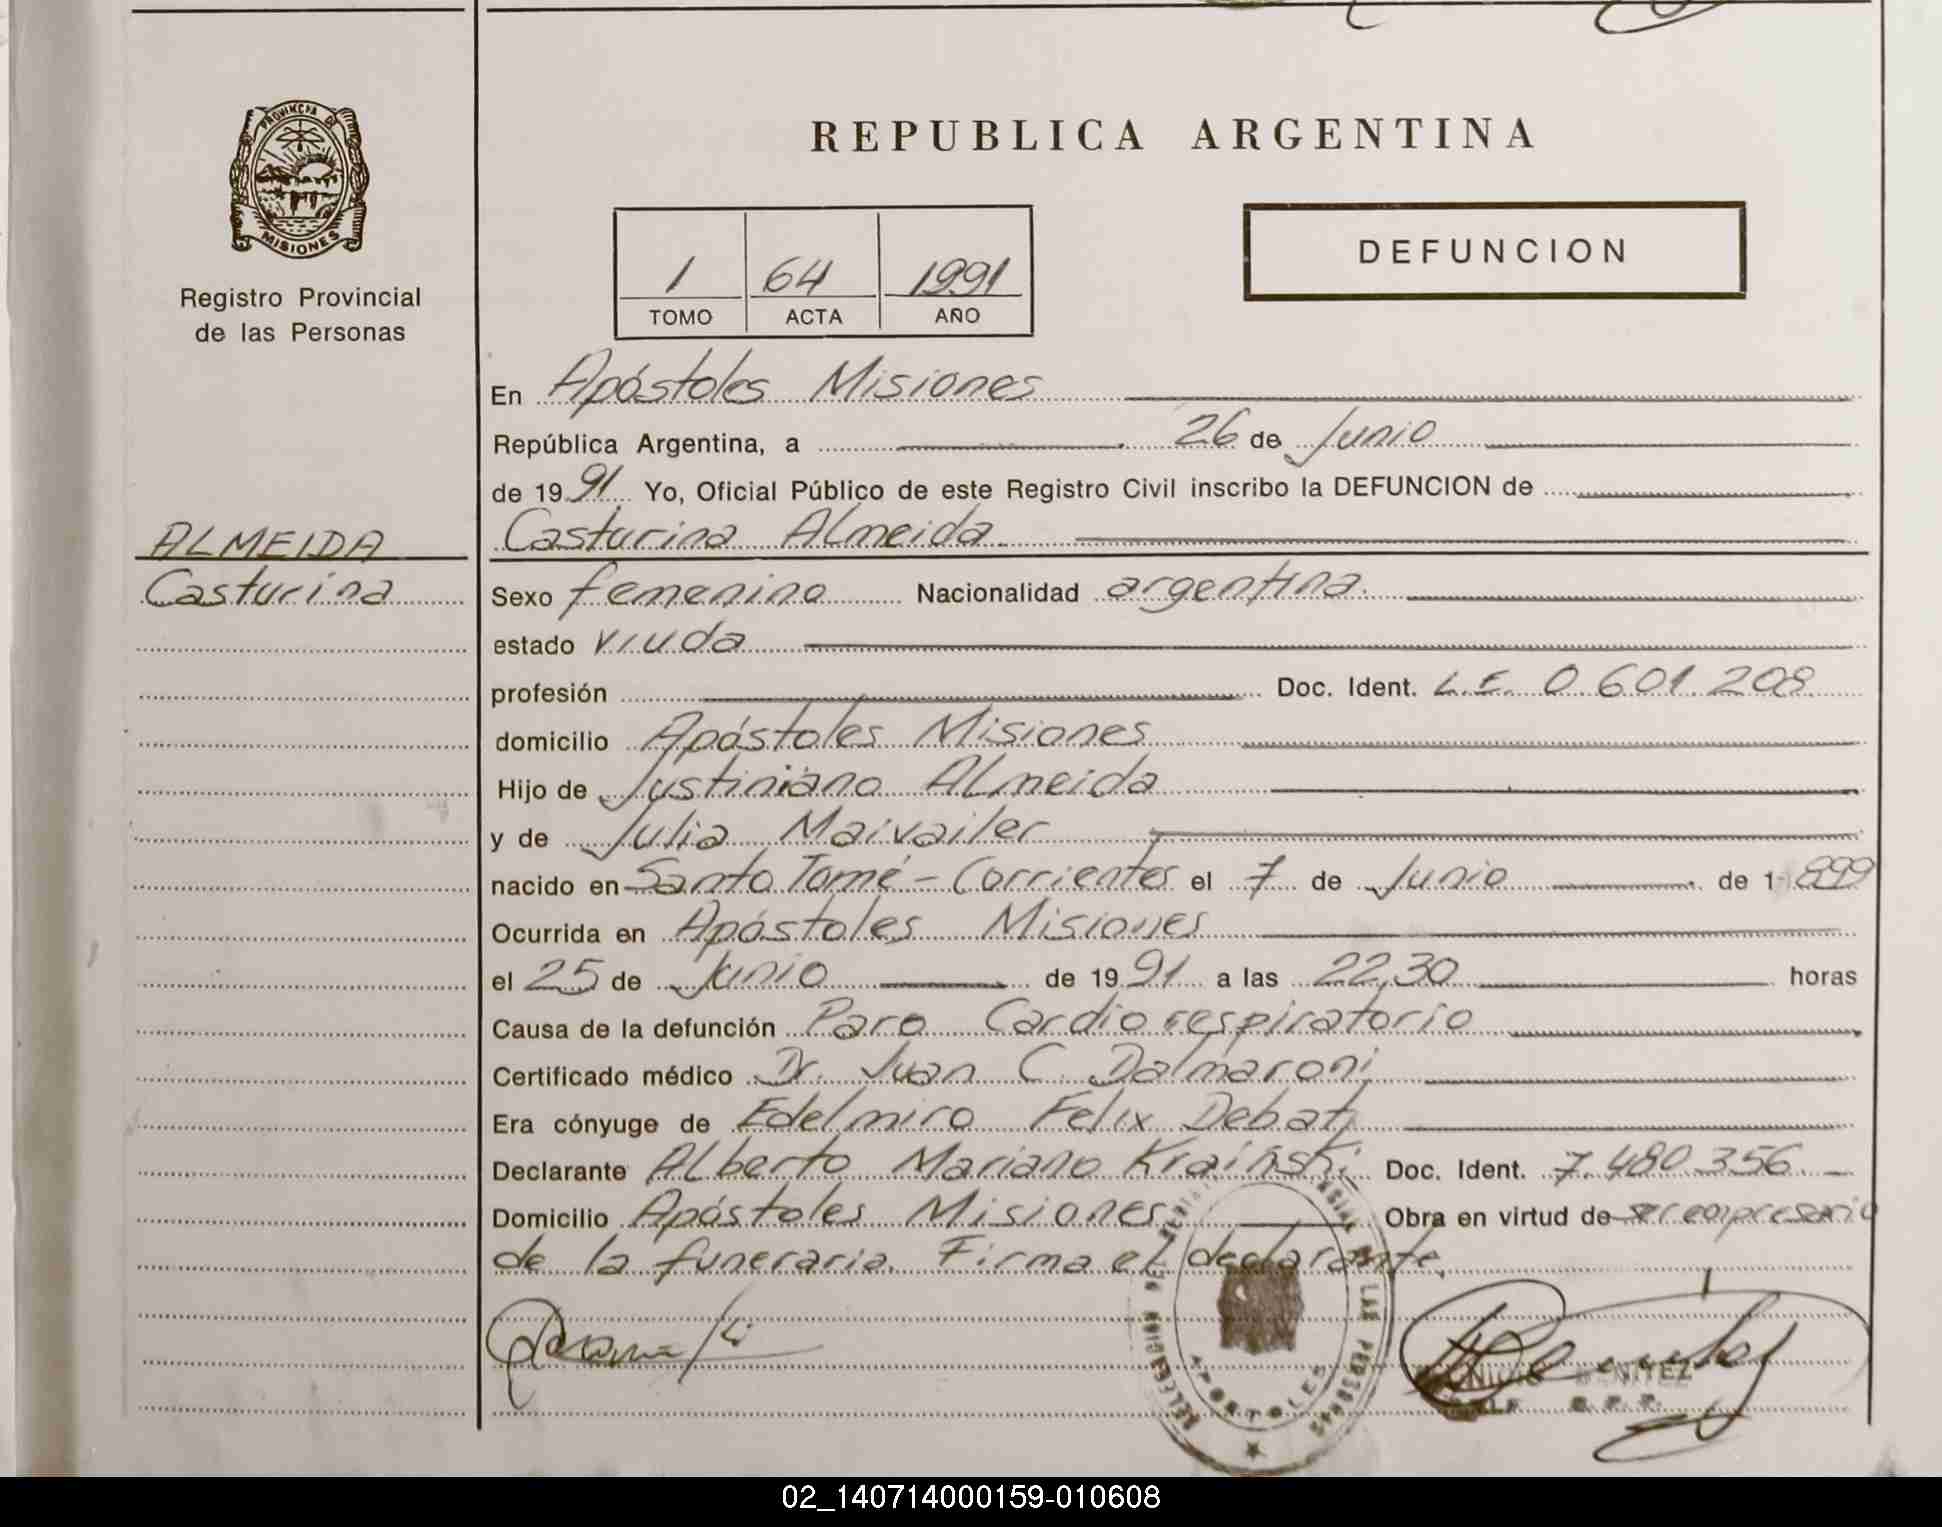 PROVINCIA DE
MISIONES
Registro Provincial
de las Personas
REPUBLICA ARGENTINA
1 64 1991
TOMO ACTA AÑO
DEFUNCION
En Apóstoles Misiones
República Argentina, a 26 de Junio
de 1991 Yo, Oficial Público de este Registro Civil inscribo la DEFUNCION de
ALMEIDA
Casturina
Casturina Almeida
Sexo femenino Nacionalidad argentina.
estado viuda
profesión Doc. Ident. L.E. 0.601.208
domicilio Apóstoles Misiones
Hijo de Justiniano Almeida
y de Julia Maivailer
nacido en Santo Tomé - Corrientes el 7 de Junio de 1899
Ocurrida en Apóstoles Misiones
el 25 de Junio de 1991 a las 22,30 horas
Causa de la defunción Paro Cardiorespiratorio
Certificado médico Dr. Juan C. Dalmaroni
Era cónyuge de Edelmiro Felix Debat
Declarante Alberto Mariano Krainski Doc. Ident. 7.480.356
Domicilio Apóstoles Misiones Obra en virtud de ser empresario
de la funeraria. Firma el declarante.
DELEGACION DEL PERSONAS
APOSTOLES
BENITEZ
02_140714000159-010608